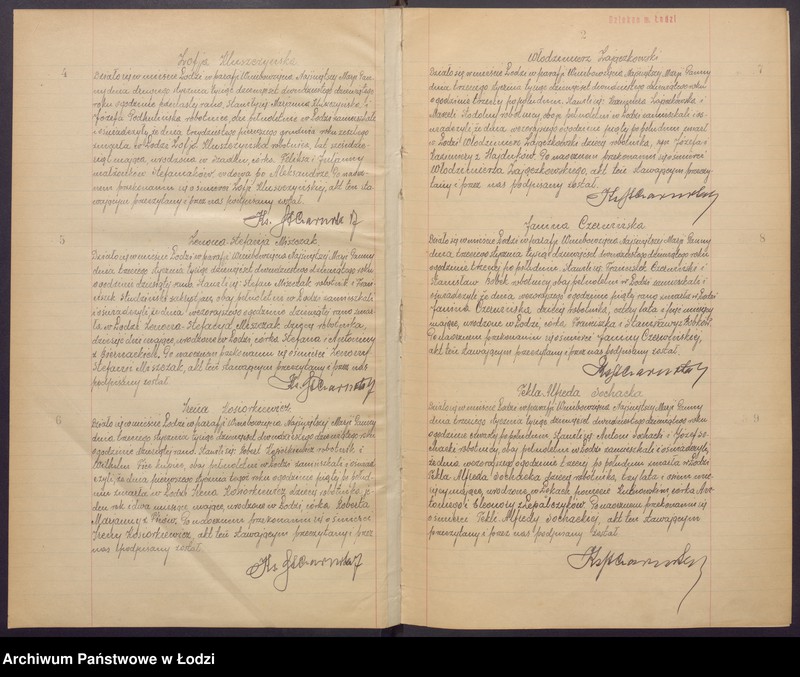 4
Zofja Kluszczyńska
Działo się w mieście Łodzi w parafji Wniebowzięcia Najświętszej Marji Pan-
ny dnia drugiego stycznia tysiąc dziewięćset dwudziestego dziewiątego
roku o godzinie rano. Stawili się Marjanna Kluszczyńska i
Józefa robotnice, obie pełnoletnie w Łodzi zamieszkałe
i oświadczyły, że dnia trzydziestego pierwszego grudnia roku zeszłego
zmarła w Łodzi Zofja Kluszczyńska robotnica, lat
siąt mająca, urodzona w córka Feliksa i Juljanny
małżonków Stefaniaków wdowa po Aleksandrze. Po naocz-
nem przekonaniu się o śmierci Zofji Kluszczyńskiej, akt ten sta-
wającym przeczytany i przez nas podpisany został.
Ks.
5
Zenona Stefanja Miszczak
Działo się w mieście Łodzi w parafji Wniebowzięcia Najświętszej Marji Panny
dnia trzeciego stycznia tysiąc dziewięćset dwudziestego dziewiątego roku
o godzinie dziesiątej rano. Stawili się: Stefan robotnik i Fran-
ciszek obaj pełnoletni w Łodzi zamieszkali
i oświadczyli, że dnia wczorajszego o godzinie dziewiątej rano zmar-
ła w Łodzi Zenona Stefanja Miszczak dziecię robotnika,
dni mające, urodzone w Łodzi, córka Stefana i Antoniny
z Po naocznem przekonaniu się o śmierci Zenony
Stefanji Miszczak, akt ten stawającym przeczytany i przez nas
podpisany został.
Ks.
6
Irena Kosiorkiewicz
Działo się w mieście Łodzi w parafji Wniebowzięcia Najświętszej Marji Panny
dnia trzeciego stycznia tysiąc dziewięćset dwudziestego dziewiątego roku
o godzinie rano. Stawili się: Robert Kosiorkiewicz robotnik i
Wilhelm kupiec, obaj pełnoletni w Łodzi zamieszkali i oświad-
czyli, że dnia pierwszego stycznia bież. roku o godzinie piątej po połud-
niu zmarła w Łodzi Irena Kosiorkiewicz, dziecię robotnika, je-
den rok i dwa miesiące mające, urodzone w Łodzi, córka Roberta
i Marjanny z Po naocznem przekonaniu się o śmierci
Ireny Kosiorkiewicz, akt ten stawającym przeczytany i przez
nas podpisany został.
Ks.
2
7
Włodzimierz Zajączkowski
Działo się w mieście Łodzi w parafji Wniebowzięcia Najświętszej Marji Panny
dnia trzeciego stycznia tysiąc dziewięćset dwudziestego dziewiątego roku
o godzinie trzeciej po południu. Stawili się: Kazimiera Zajączkowska i
Marceli robotnicy, oboje pełnoletni w Łodzi zamieszkali i oś-
wiadczyli, że dnia wczorajszego o godzinie piątej po południu zmarł
w Łodzi Włodzimierz Zajączkowski dziecię robotnika, syn Józefa i
Kazimiery z Hajdukow. Po naocznem przekonaniu się o śmierci
Włodzimierza Zajączkowskiego, akt ten stawającym przeczy-
tany i przez nas podpisany został.
Ks.
8
Janina Czerwińska
Działo się w mieście Łodzi w parafji Wniebowzięcia Najświętszej Marji Panny
dnia trzeciego stycznia tysiąc dziewięćset dwudziestego dziewiątego roku
o godzinie trzeciej po południu. Stawili się: Franciszek Czerwiński i
Stanisław Bobek robotnicy obaj pełnoletni w Łodzi zamieszkali i
oświadczyli, że dnia wczorajszego o godzinie piątej rano zmarła w Łodzi
Janina Czerwińska, dziecię robotnika, cztery lata i miesięcy
mające, urodzone w Łodzi, córka Franciszka i Stanisławy z Bobków.
Po naocznem przekonaniu się o śmierci Janiny Czerwińskiej,
akt ten stawającym przeczytany i przez nas podpisany został.
Ks.
9
Tekla Alfreda Sochacka
Działo się w mieście Łodzi w parafji Wniebowzięcia Najświętszej Marji Panny
dnia trzeciego stycznia tysiąc dziewięćset dwudziestego dziewiątego roku
o godzinie czwartej po południu. Stawili się: Antoni Sochacki i Józef So-
chacki robotnicy, obaj pełnoletni w Łodzi zamieszkali i oświadczyli,
że dnia wczorajszego o godzinie trzeciej po południu zmarła w Łodzi
Tekla Alfreda Sochacka dziecię robotnika, trzy lata i osiem mie-
sięcy mające, urodzone w powiecie córka An-
toniego i Eleonory Po naocznem przekonaniu się
o śmierci Tekli Alfredy Sochackiej, akt ten stawającym
przeczytany i przez nas podpisany został.
Ks.
Archiwum Państwowe w Łodzi